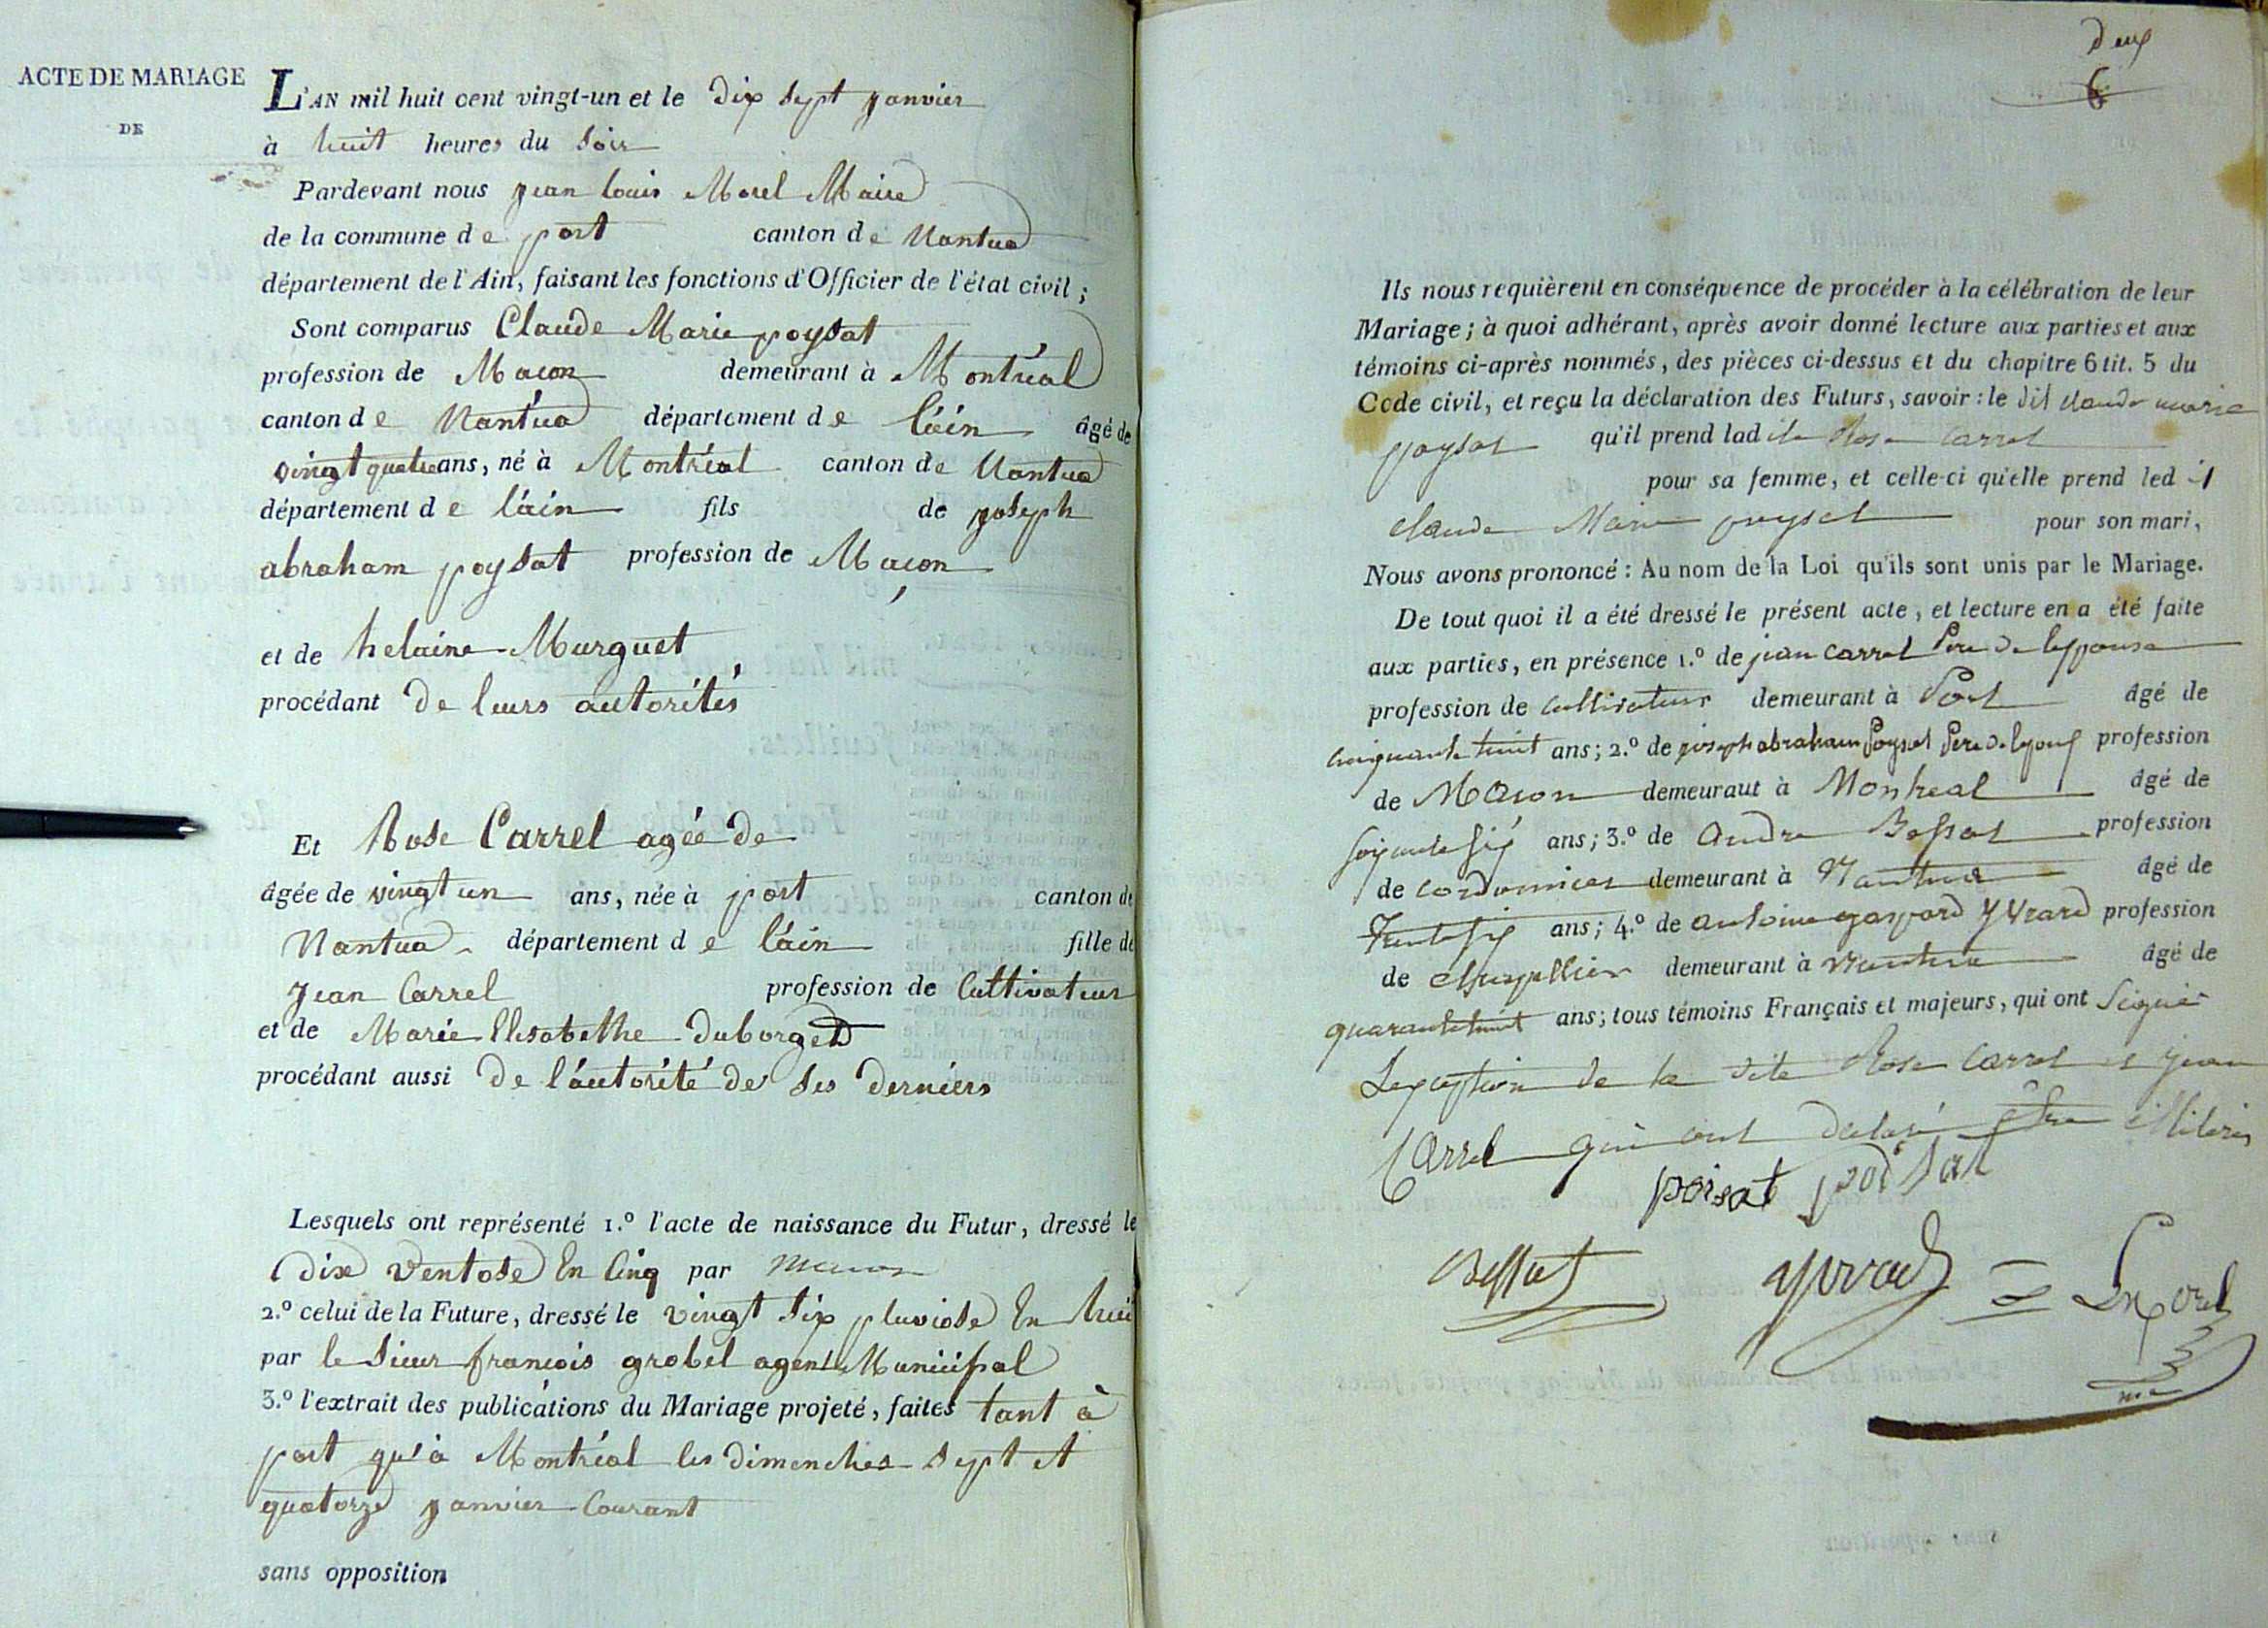 ACTE DE MARIAGE
DE
L'AN mil huit cent vingt-un et le dix sept janvier
à huit heures du soir
Pardevant nous jean louis Morel Maire
de la commune de port canton de Nantua
département de l'Ain, faisant les fonctions d'Officier de l'état civil;
Sont comparus Claude Marie poysat
profession de Macon demeurant à Montréal
canton de Nantua département de láin âgé de
vingt quatre ans, né à Montréal canton de Nantua
département de láin fils de joseph
abraham poysat profession de Maçon
et de helaine Murguet
procédant de leurs autorités
Et Rose Carrel agée de
âgée de vingt un ans, née à port canton de
Nantua département de láin fille de
jean Carrel profession de Cultivateur
et de Marie Elisabethe duborget
procédant aussi de láutorité de ses derniers
Lesquels ont représenté 1.º l'acte de naissance du Futur, dressé le
dix ventose En Cinq par
2.º celui de la Future, dressé le vingt six pluviose En huit
par le sieur francois grobel agent Municipal
3.º l'extrait des publications du Mariage projeté, faites tant à
port qu'à Montréal les dimenches sept et
quatorze janvier Courant
sans opposition
deux
6
Ils nous requièrent en conséquence de procéder à la célébration de leur
Mariage; à quoi adhérant, après avoir donné lecture aux parties et aux
témoins ci-après nommés, des pièces ci-dessus et du chapitre 6 tit. 5 du
Code civil, et reçu la déclaration des Futurs, savoir: le dit claude marie
poysat qu'il prend ladite Rose Carrel
pour sa femme, et celle-ci qu'elle prend ledit
claude Marie poysat pour son mari,
Nous avons prononcé: Au nom de la Loi qu'ils sont unis par le Mariage.
De tout quoi il a été dressé le présent acte, et lecture en a été faite
aux parties, en présence 1.º de jean Carrel Père de lepouse
profession de Cultivateur demeurant à Port âgé de
cinquante huit ans; 2.º de joseph abraham Poysat Père de lepoux profession
de Macon demeuraut à Montreal âgé de
soixante six ans; 3.º de andre Bessat profession
de cordonnier demeurant à Nantua âgé de
Trente six ans; 4.º de antoine gaspard Yvrard profession
de demeurant à Nantua âgé de
quarante huit ans; tous témoins Français et majeurs, qui ont Signé
Lexception de la dite Rose Carrel et jean
Carrel qui ont declaré être illiteres
poisat poisat
Bessat yvrard Ls Morel